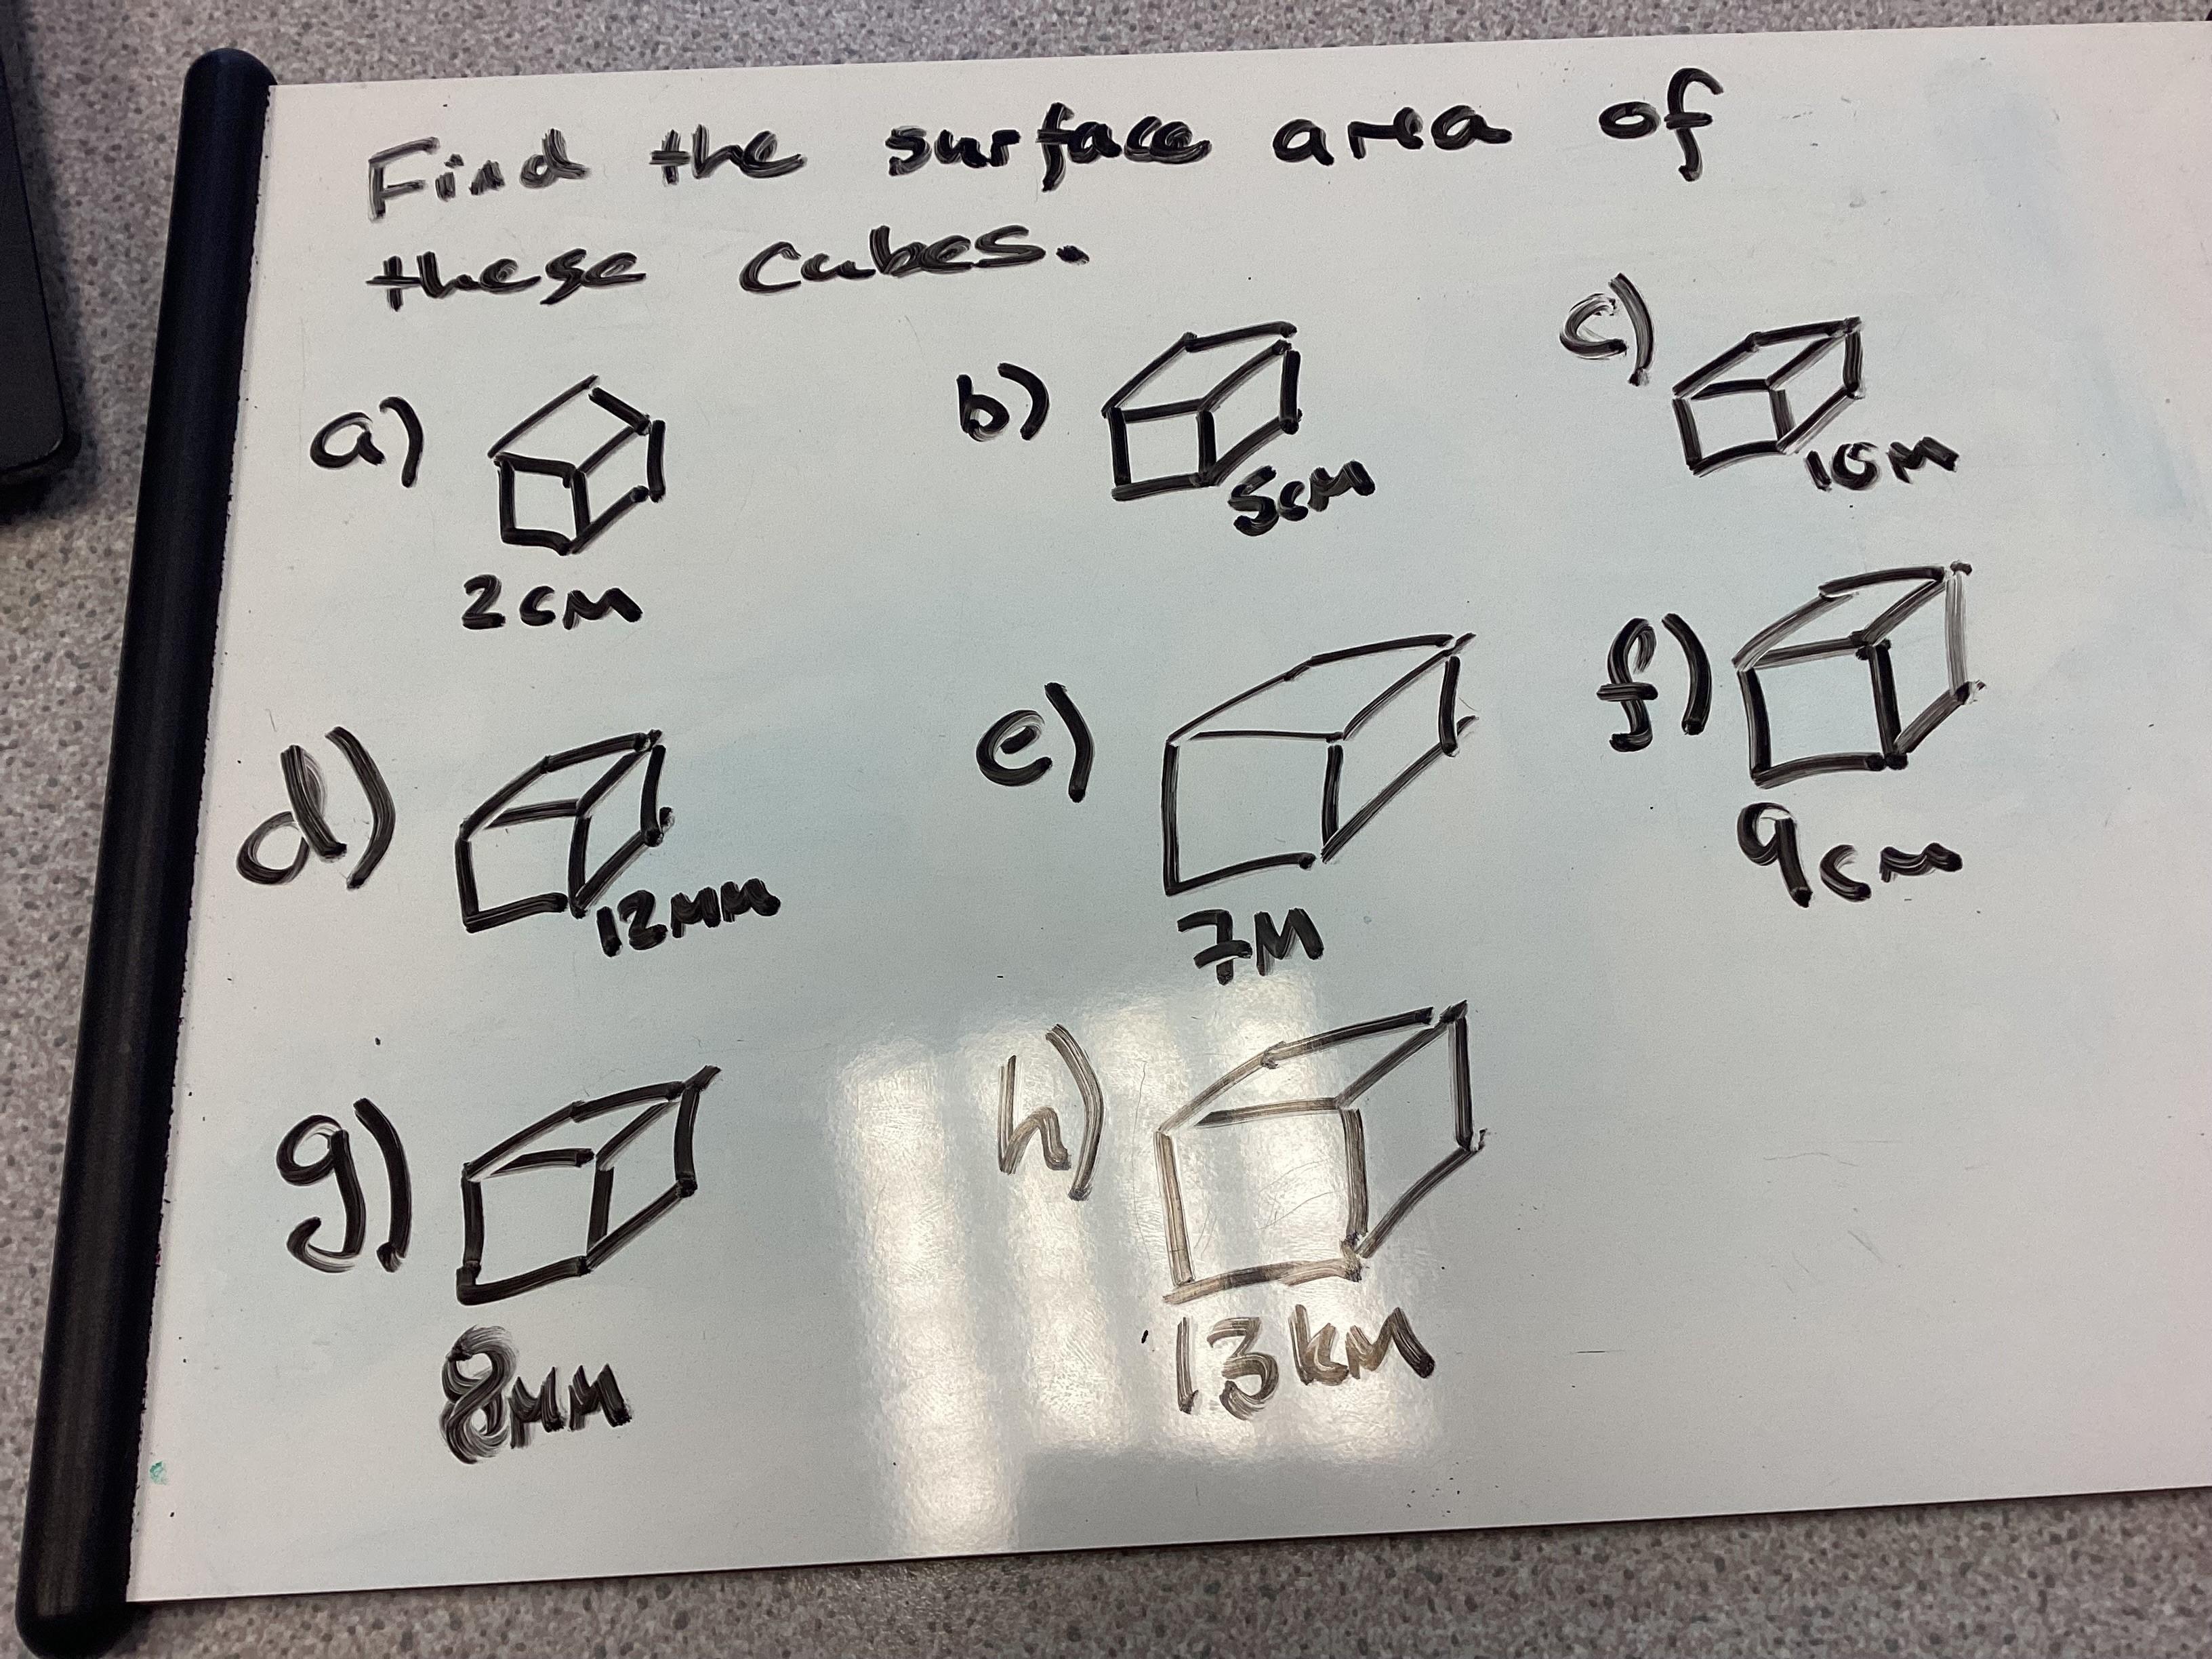 Find the surface area of
these cubes.
a) 2cm
b) 5cm
c) 10m
d) 12mm
e) 7m
f) 9cm
g) 8mm
h) 13km